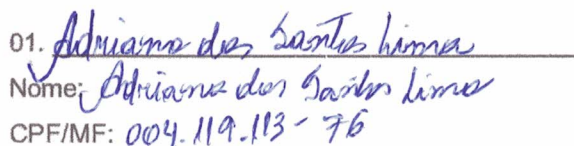 01. Adriano dos Santos Lima
Nome: Adriano dos Santos Lima
CPF/MF: 004.119.113-76